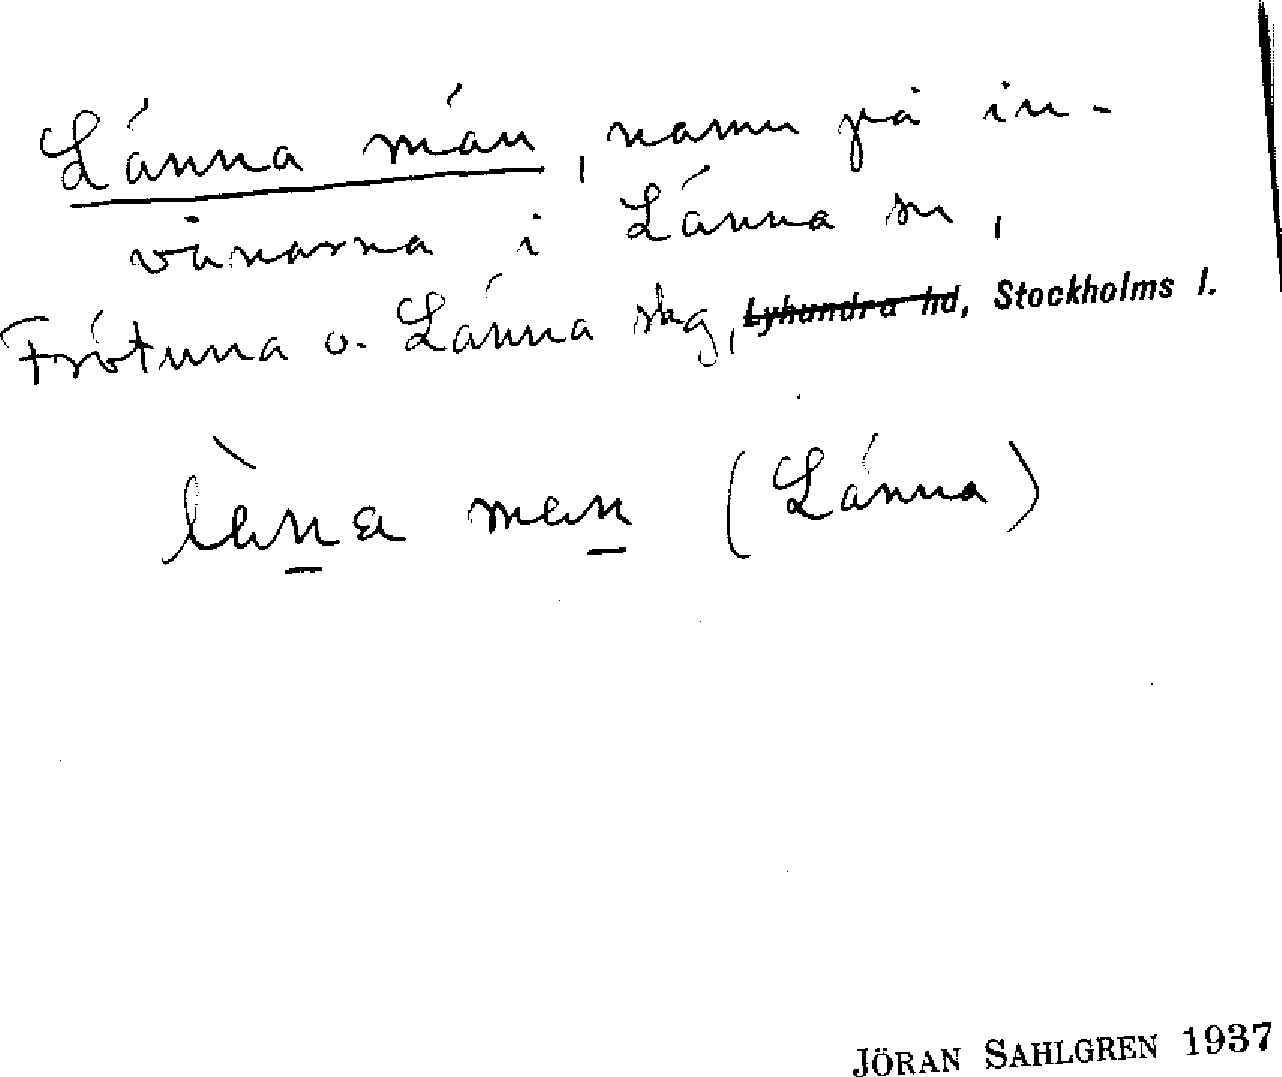 Länna män, namn på in-
vånarna i Länna sn,
Frötuna o. Länna skg, Lyhundra hd, Stockholms l.
lèna men (Länna)
JÖRAN SAHLGREN 1937